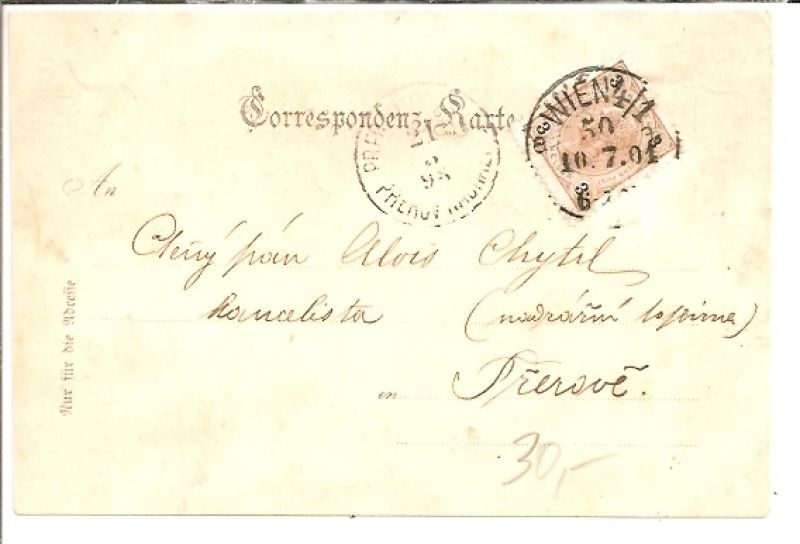 Correspondenz-Karte
WIEN 4/1
50
10.7.01
6-
21
5
98
PŘEROV
An
Ctěný pán Alois Chytil
kancelista (nádražní topírna)
in Přerově.
Nur für die Adresse
30,-